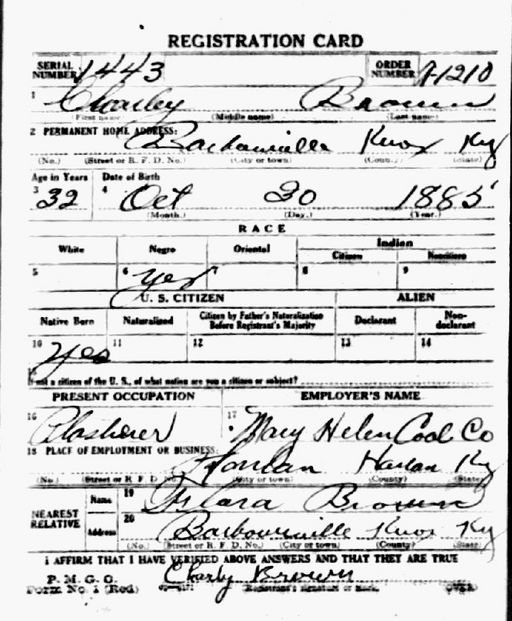 REGISTRATION CARD
SERIAL NUMBER 1443 ORDER NUMBER A-1210
1 Charley Brown
(First name) (Middle name) (Last name)
2 PERMANENT HOME ADDRESS: Barbourville Knox Ky
(No.) (Street or R. F. D. No.) (City or town) (County) (State)
Age in Years Date of Birth
3 32 4 Oct 30 1885
(Month.) (Day.) (Year.)
RACE
White Negro Oriental Indian
Citizen Noncitizen
5 6 yes 7 8 9
U. S. CITIZEN ALIEN
Native Born Naturalized Citizen by Father's Naturalization Before Registrant's Majority Declarant Non-declarant
10 Yes 11 12 13 14
15 If not a citizen of the U. S., of what nation are you a citizen or subject?
PRESENT OCCUPATION EMPLOYER'S NAME
16 Plasterer 17 Mary Helen Coal Co
18 PLACE OF EMPLOYMENT OR BUSINESS: Harlan Harlan Ky
(No.) (Street or R. F. D. No.) (City or town) (County) (State)
NEAREST RELATIVE Name 19 Brown
Address 20 Barbourville Knox Ky
(No.) (Street or R. F. D. No.) (City or town) (County) (State)
I AFFIRM THAT I HAVE VERIFIED ABOVE ANSWERS AND THAT THEY ARE TRUE
P. M. G. O. Charly Brown
Form No. 1 (Red) (Registrant's signature or mark.) OVER